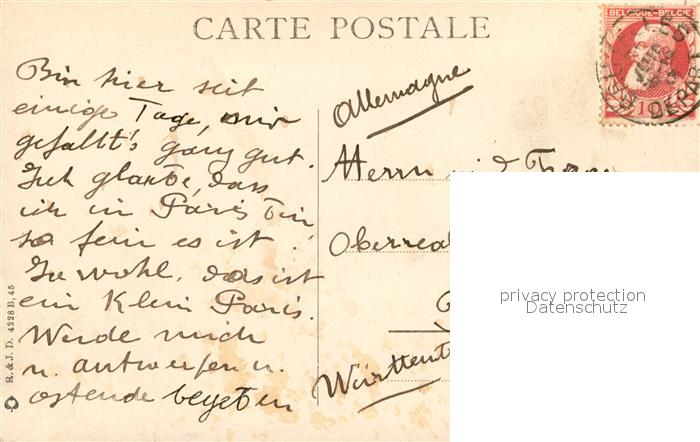 CARTE POSTALE
BELGIQUE-BELGIË
10
Bin hier seit
einige Tage, mir
gefallt's ganz gut.
Ich glaube, dass
ich in Paris bin
so fein es ist.
Ja wohl, das ist
ein Klein Paris.
Werde mich
n. antwerfen u.
ostende begeben
R. & J. D. 4228 B, 45
Allemagne
Herrn und Frau
Oberreal
Württemb
privacy protection
Datenschutz